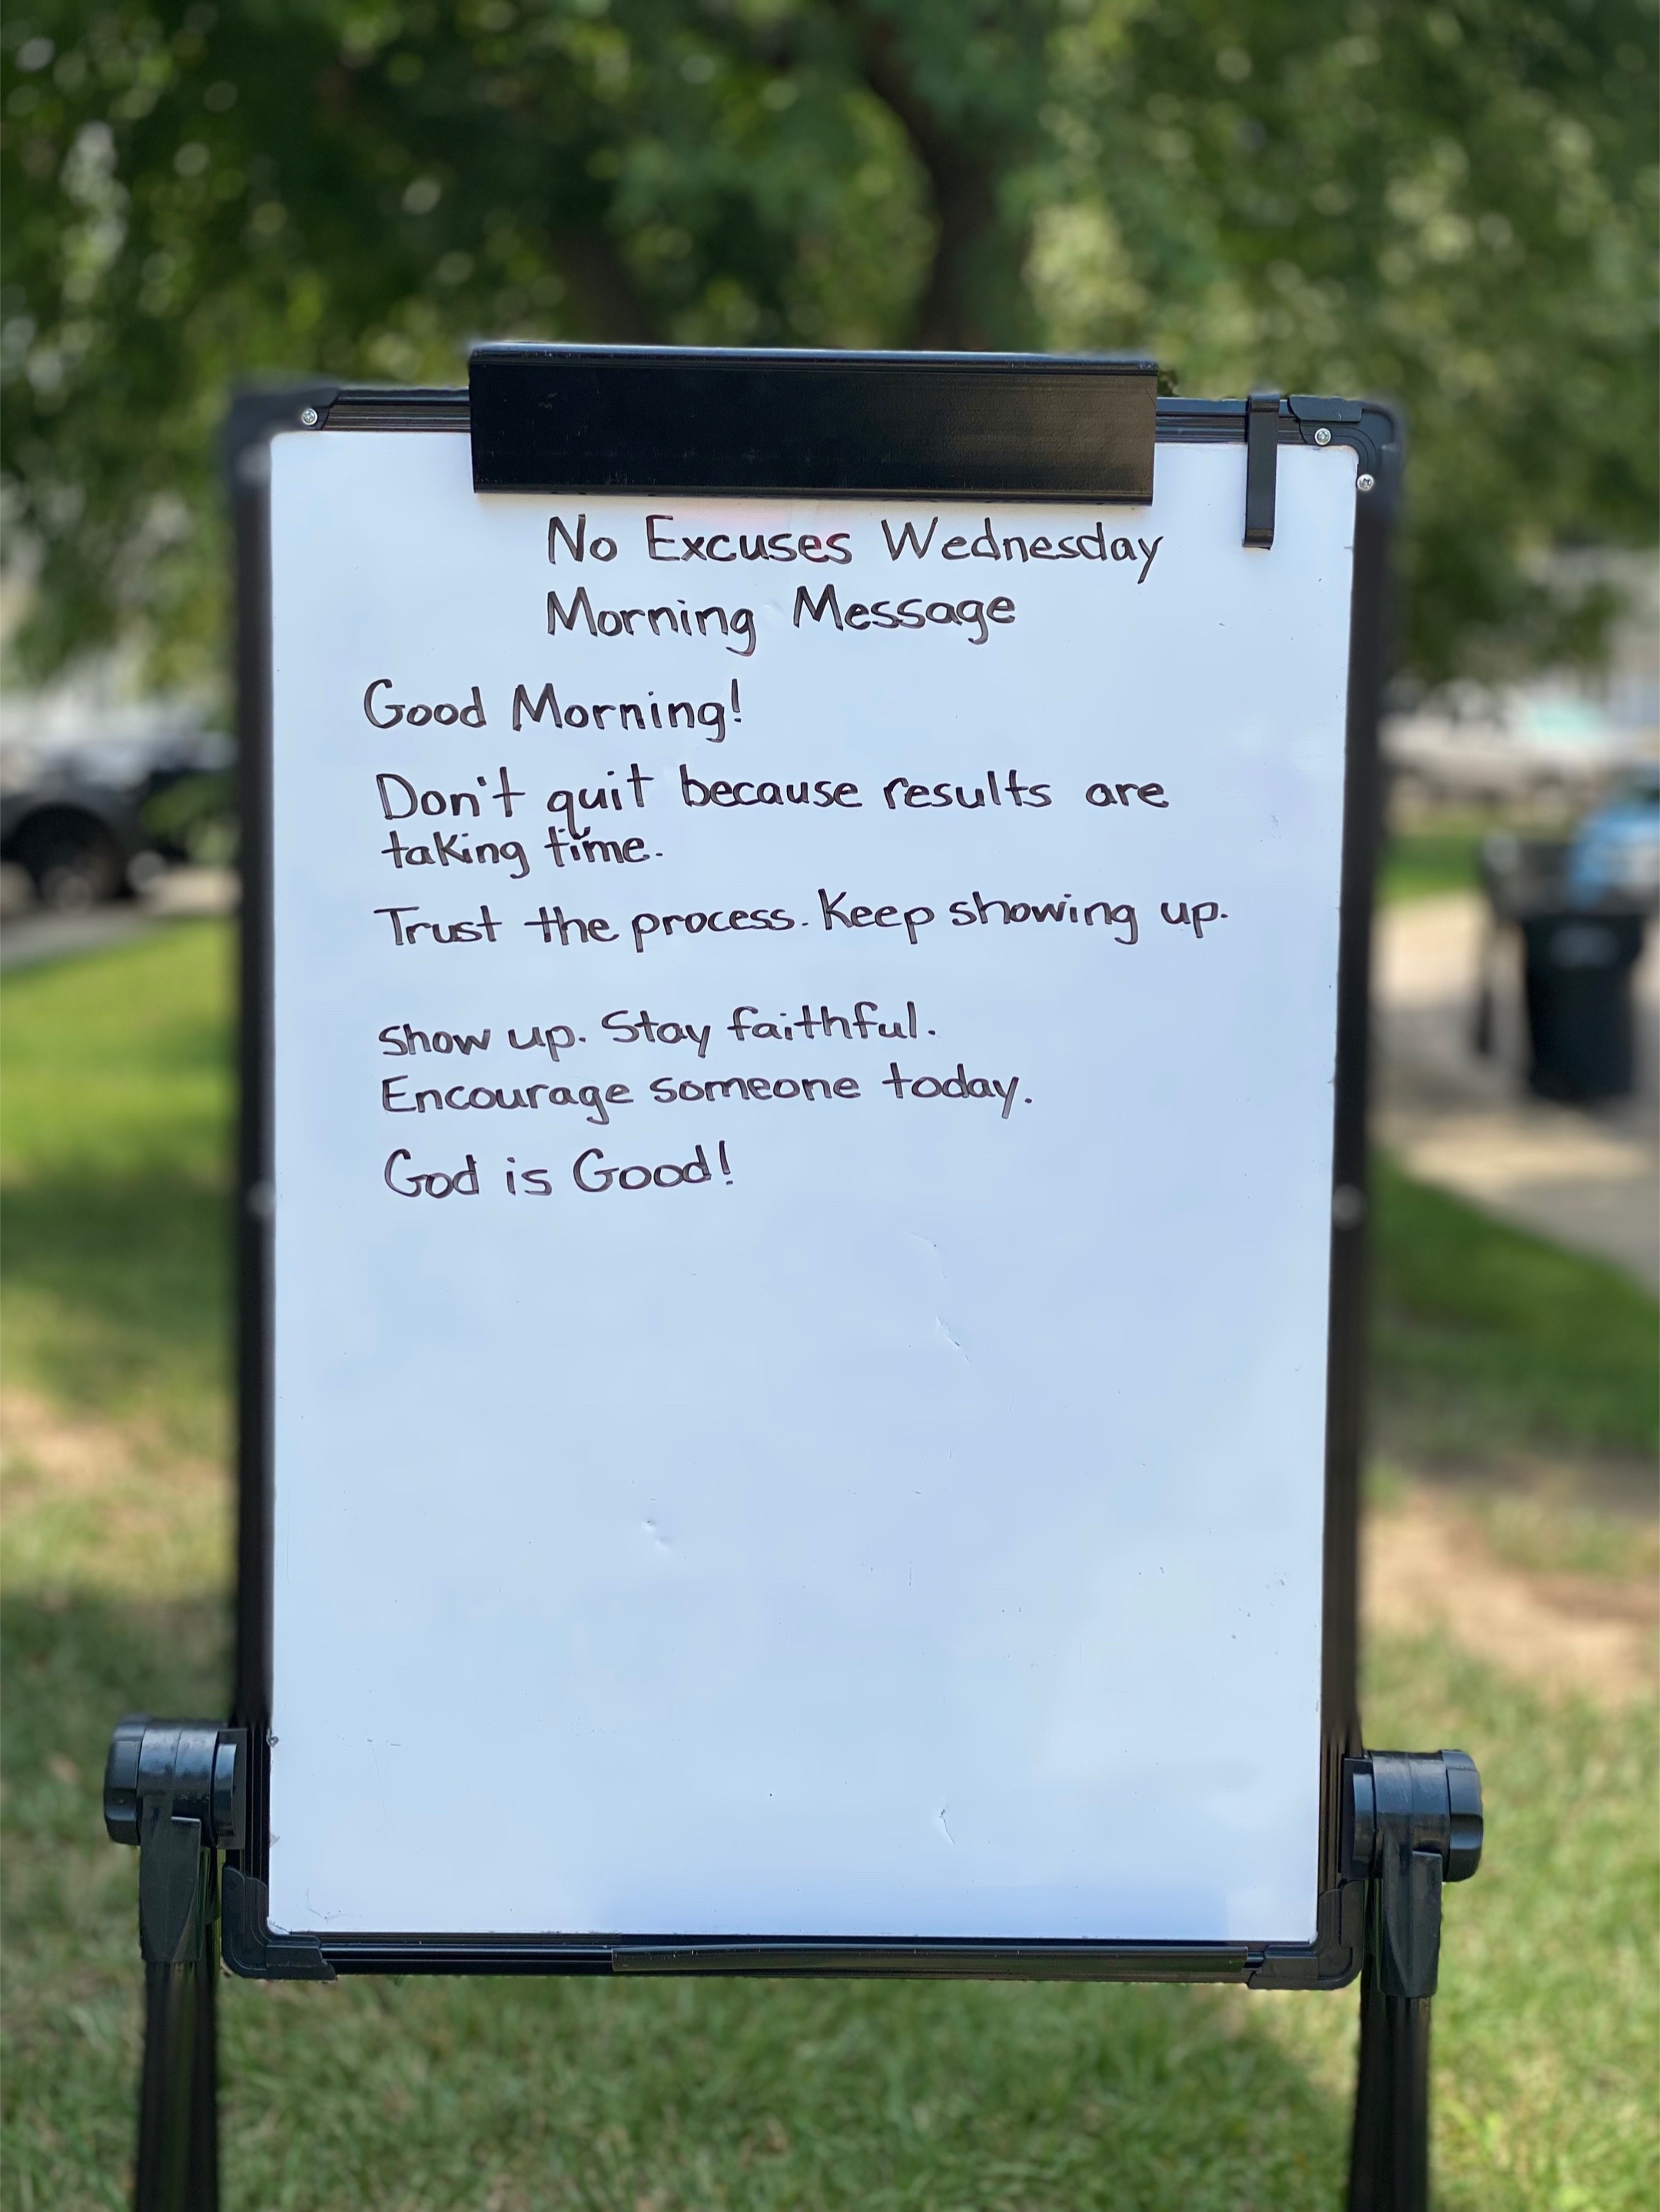 No Excuses Wednesday
Morning Message
Good Morning!
Don't quit because results are
taking time.
Trust the process. Keep showing up.
Show up. Stay faithful.
Encourage someone today.
God is Good!